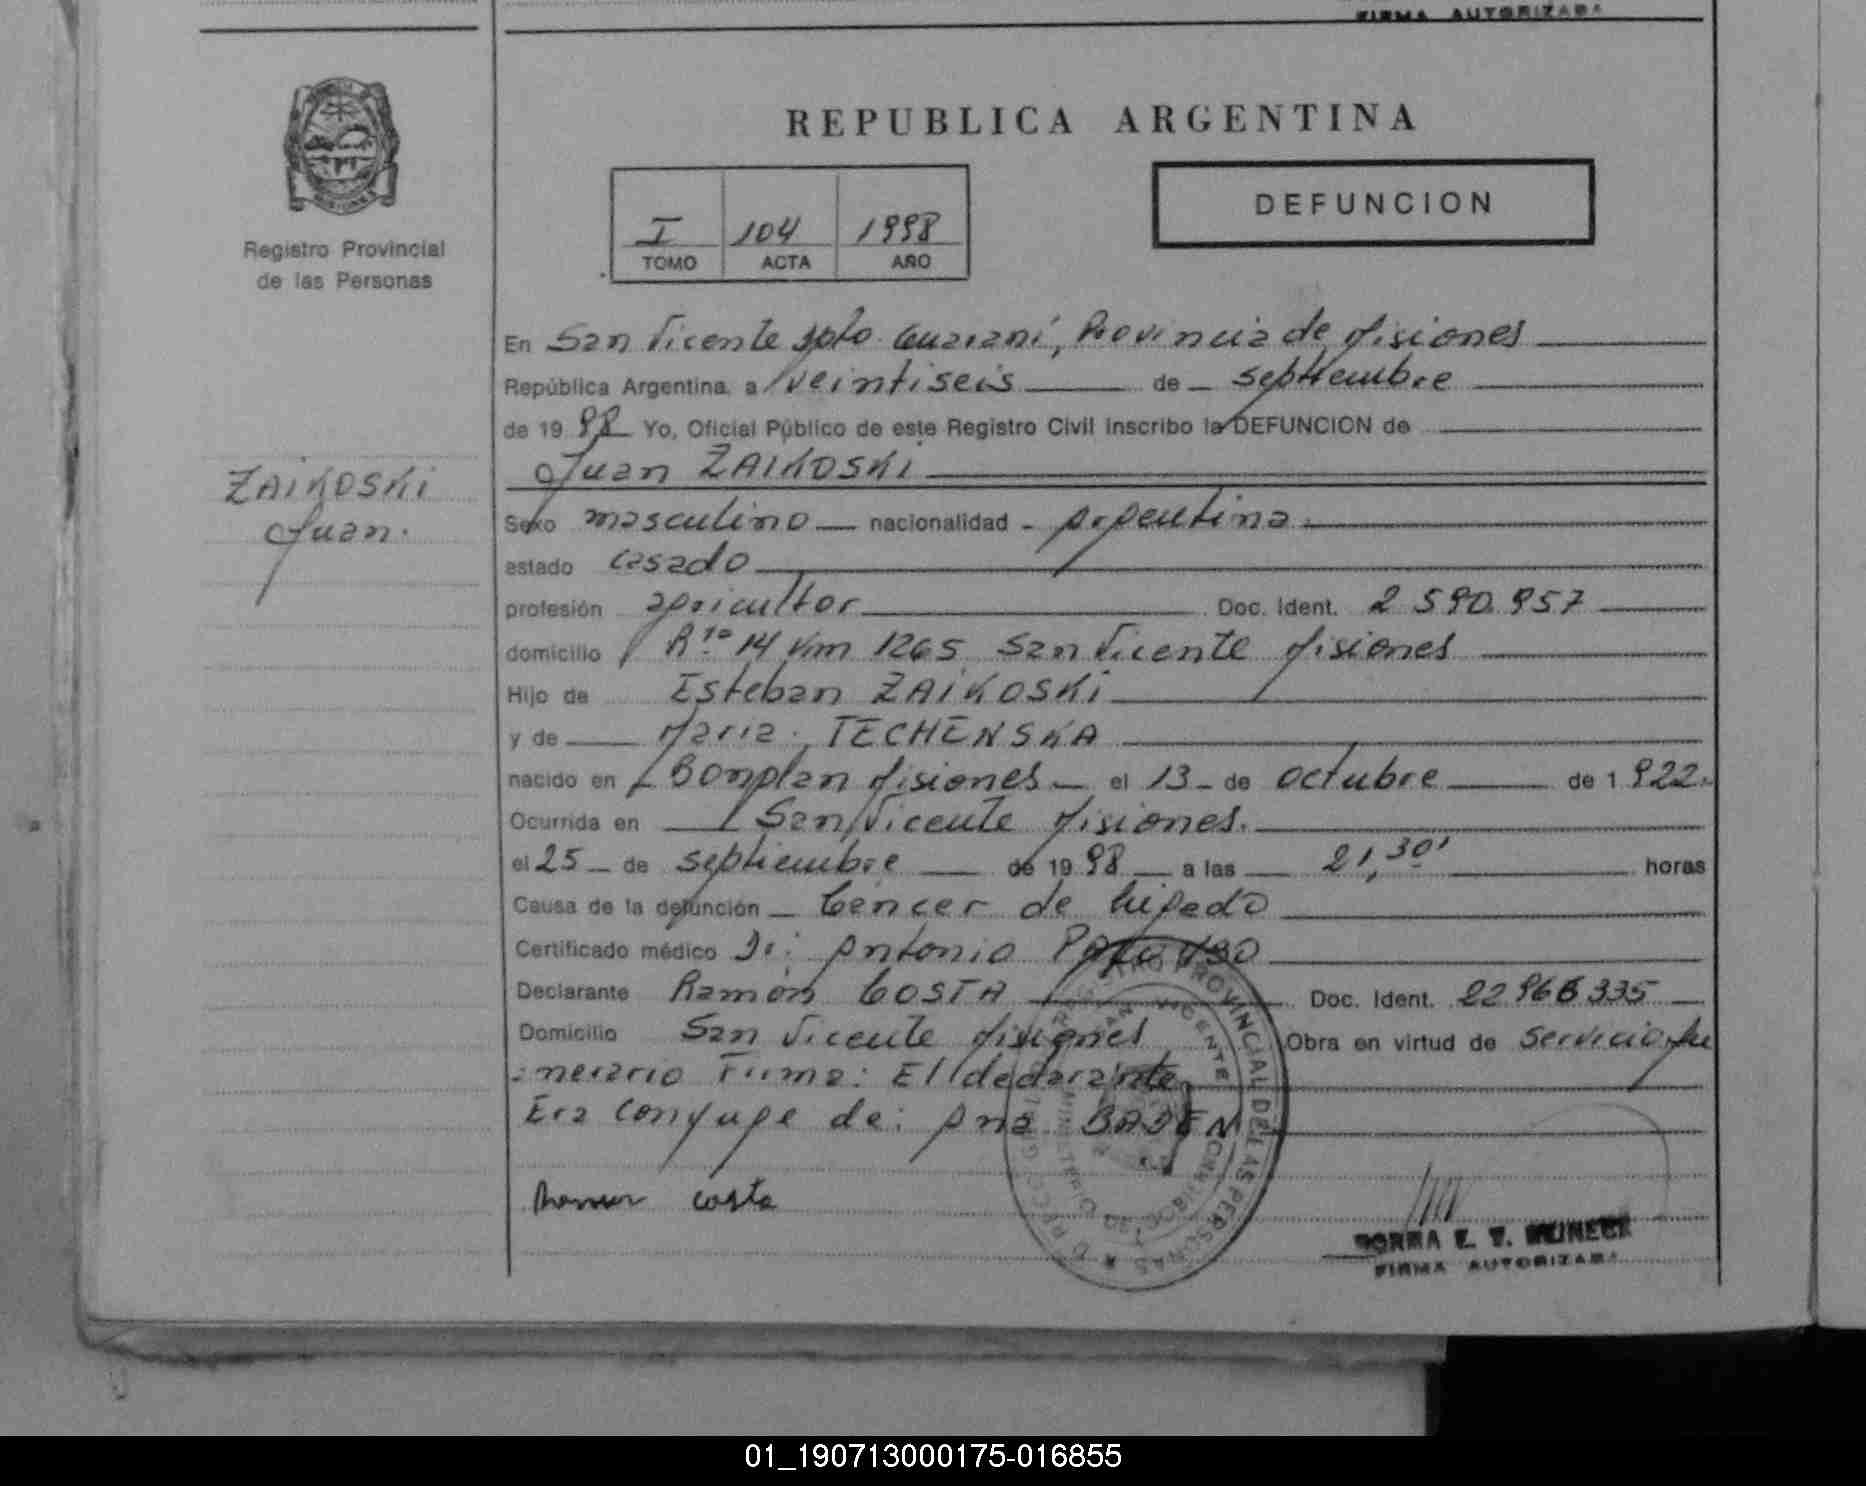 FIRMA AUTORIZADA
REPUBLICA ARGENTINA
DEFUNCION
I 104 1998
TOMO ACTA AÑO
Registro Provincial
de las Personas
En San Vicente Dpto Guaraní, Provincia de Misiones
República Argentina, a veintiseis de septiembre
de 19 98 Yo, Oficial Público de este Registro Civil inscribo la DEFUNCION de
Juan ZAIKOSKI
ZAIKOSKI
Juan.
Sexo masculino nacionalidad - Argentina
estado casado
profesión agricultor Doc. Ident. 2.590.957
domicilio Rta 14 Km 1265 San Vicente Misiones
Hijo de Esteban ZAIKOSKI
y de Maria TECHENSKA
nacido en Bonplan Misiones el 13 de octubre de 1 922.
Ocurrida en San Vicente Misiones.
el 25 de septiembre de 19 98 a las 21,30' horas
Causa de la defunción Cáncer de higado
Certificado médico Dr: Antonio
Declarante Ramón COSTA Doc. Ident. 22.968.335
Domicilio San Vicente Misiones Obra en virtud de Servicio fu
nerario Firma: El declarante
Era Conyuge de: Ana BADEN
Ramon costa
REGISTRO PROVINCIAL DE LAS PERSONAS
SAN VICENTE
MINISTERIO
NORMA E. T.
FIRMA AUTORIZADA
01_190713000175-016855